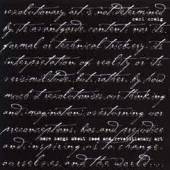 revolutionary art is not determined
carl craig
by its avant-garde content, nor its
formal or technical trickery, its
interpretation of reality or its
verisimilitude, but, rather, by how
much it revolutionizes our thinking
and imagination; overturning our
preconceptions, bias and prejudice
more songs about food and revolutionary art
and inspiring us to change
ourselves and the world